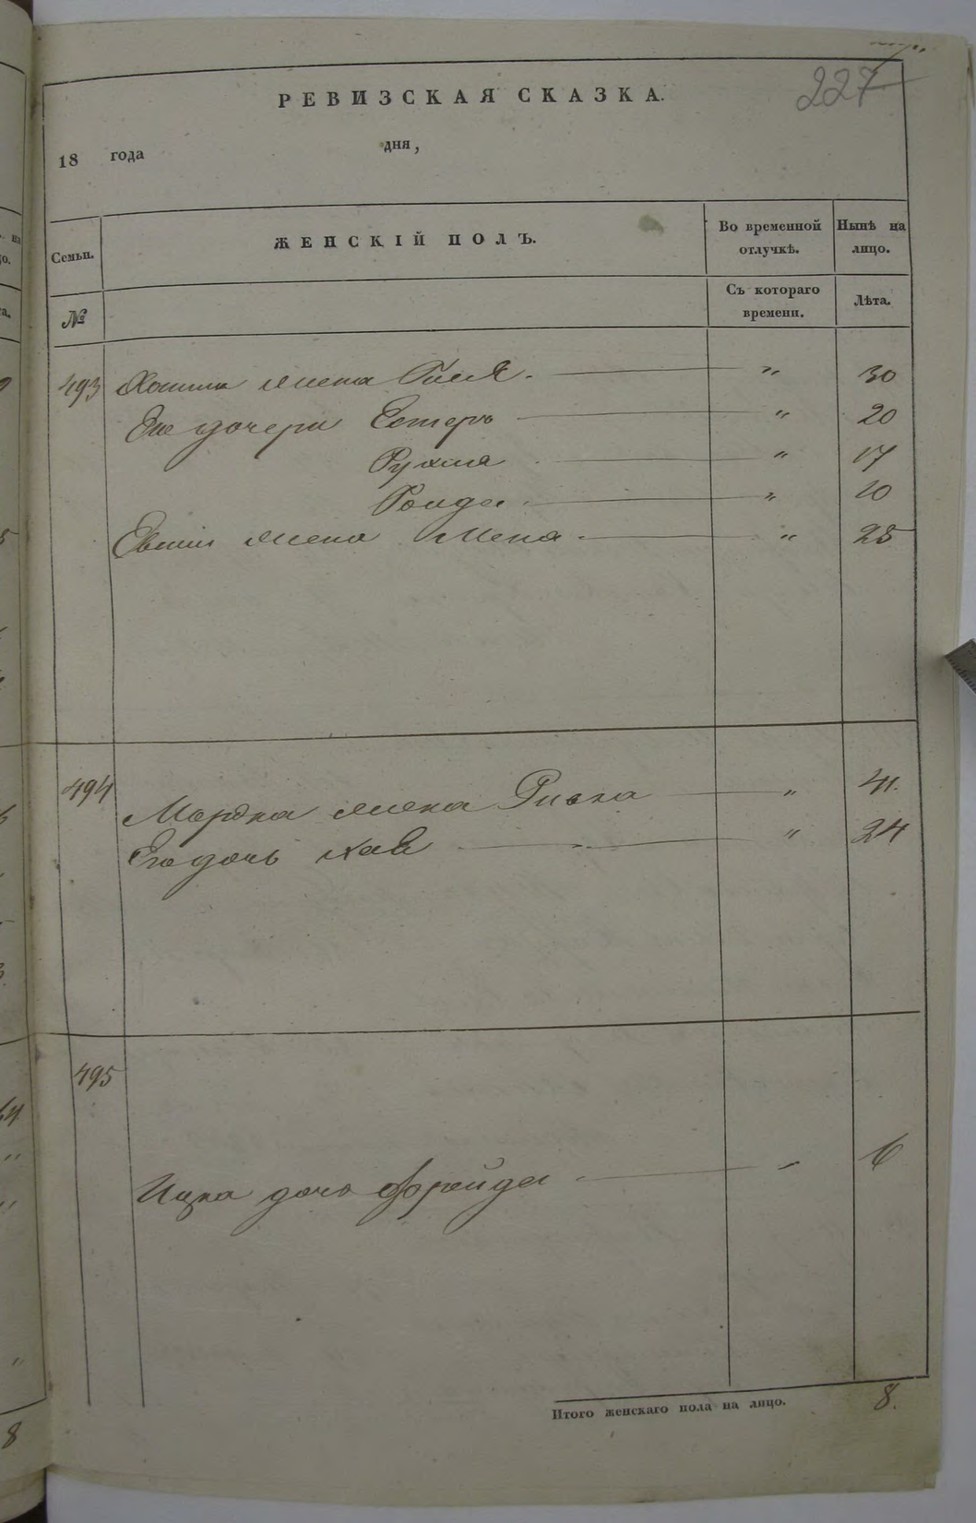 227
РЕВИЗСКАЯ СКАЗКА.
18 года дня,
Семьи. ЖЕНСКІЙ ПОЛЪ. Во временной отлучкѣ. Нынѣ на лицо.
№ Съ котораго времени. Лѣта.
493 жена " 30
Ее дочери Естеръ " 20
Рухля " 17
" 10
жена " 25
494 Мордка жена Ривка " 41.
Его дочь Хая " 24
495
Ицка дочь Фрейда " 6
Итого женскаго пола на лицо. 8.